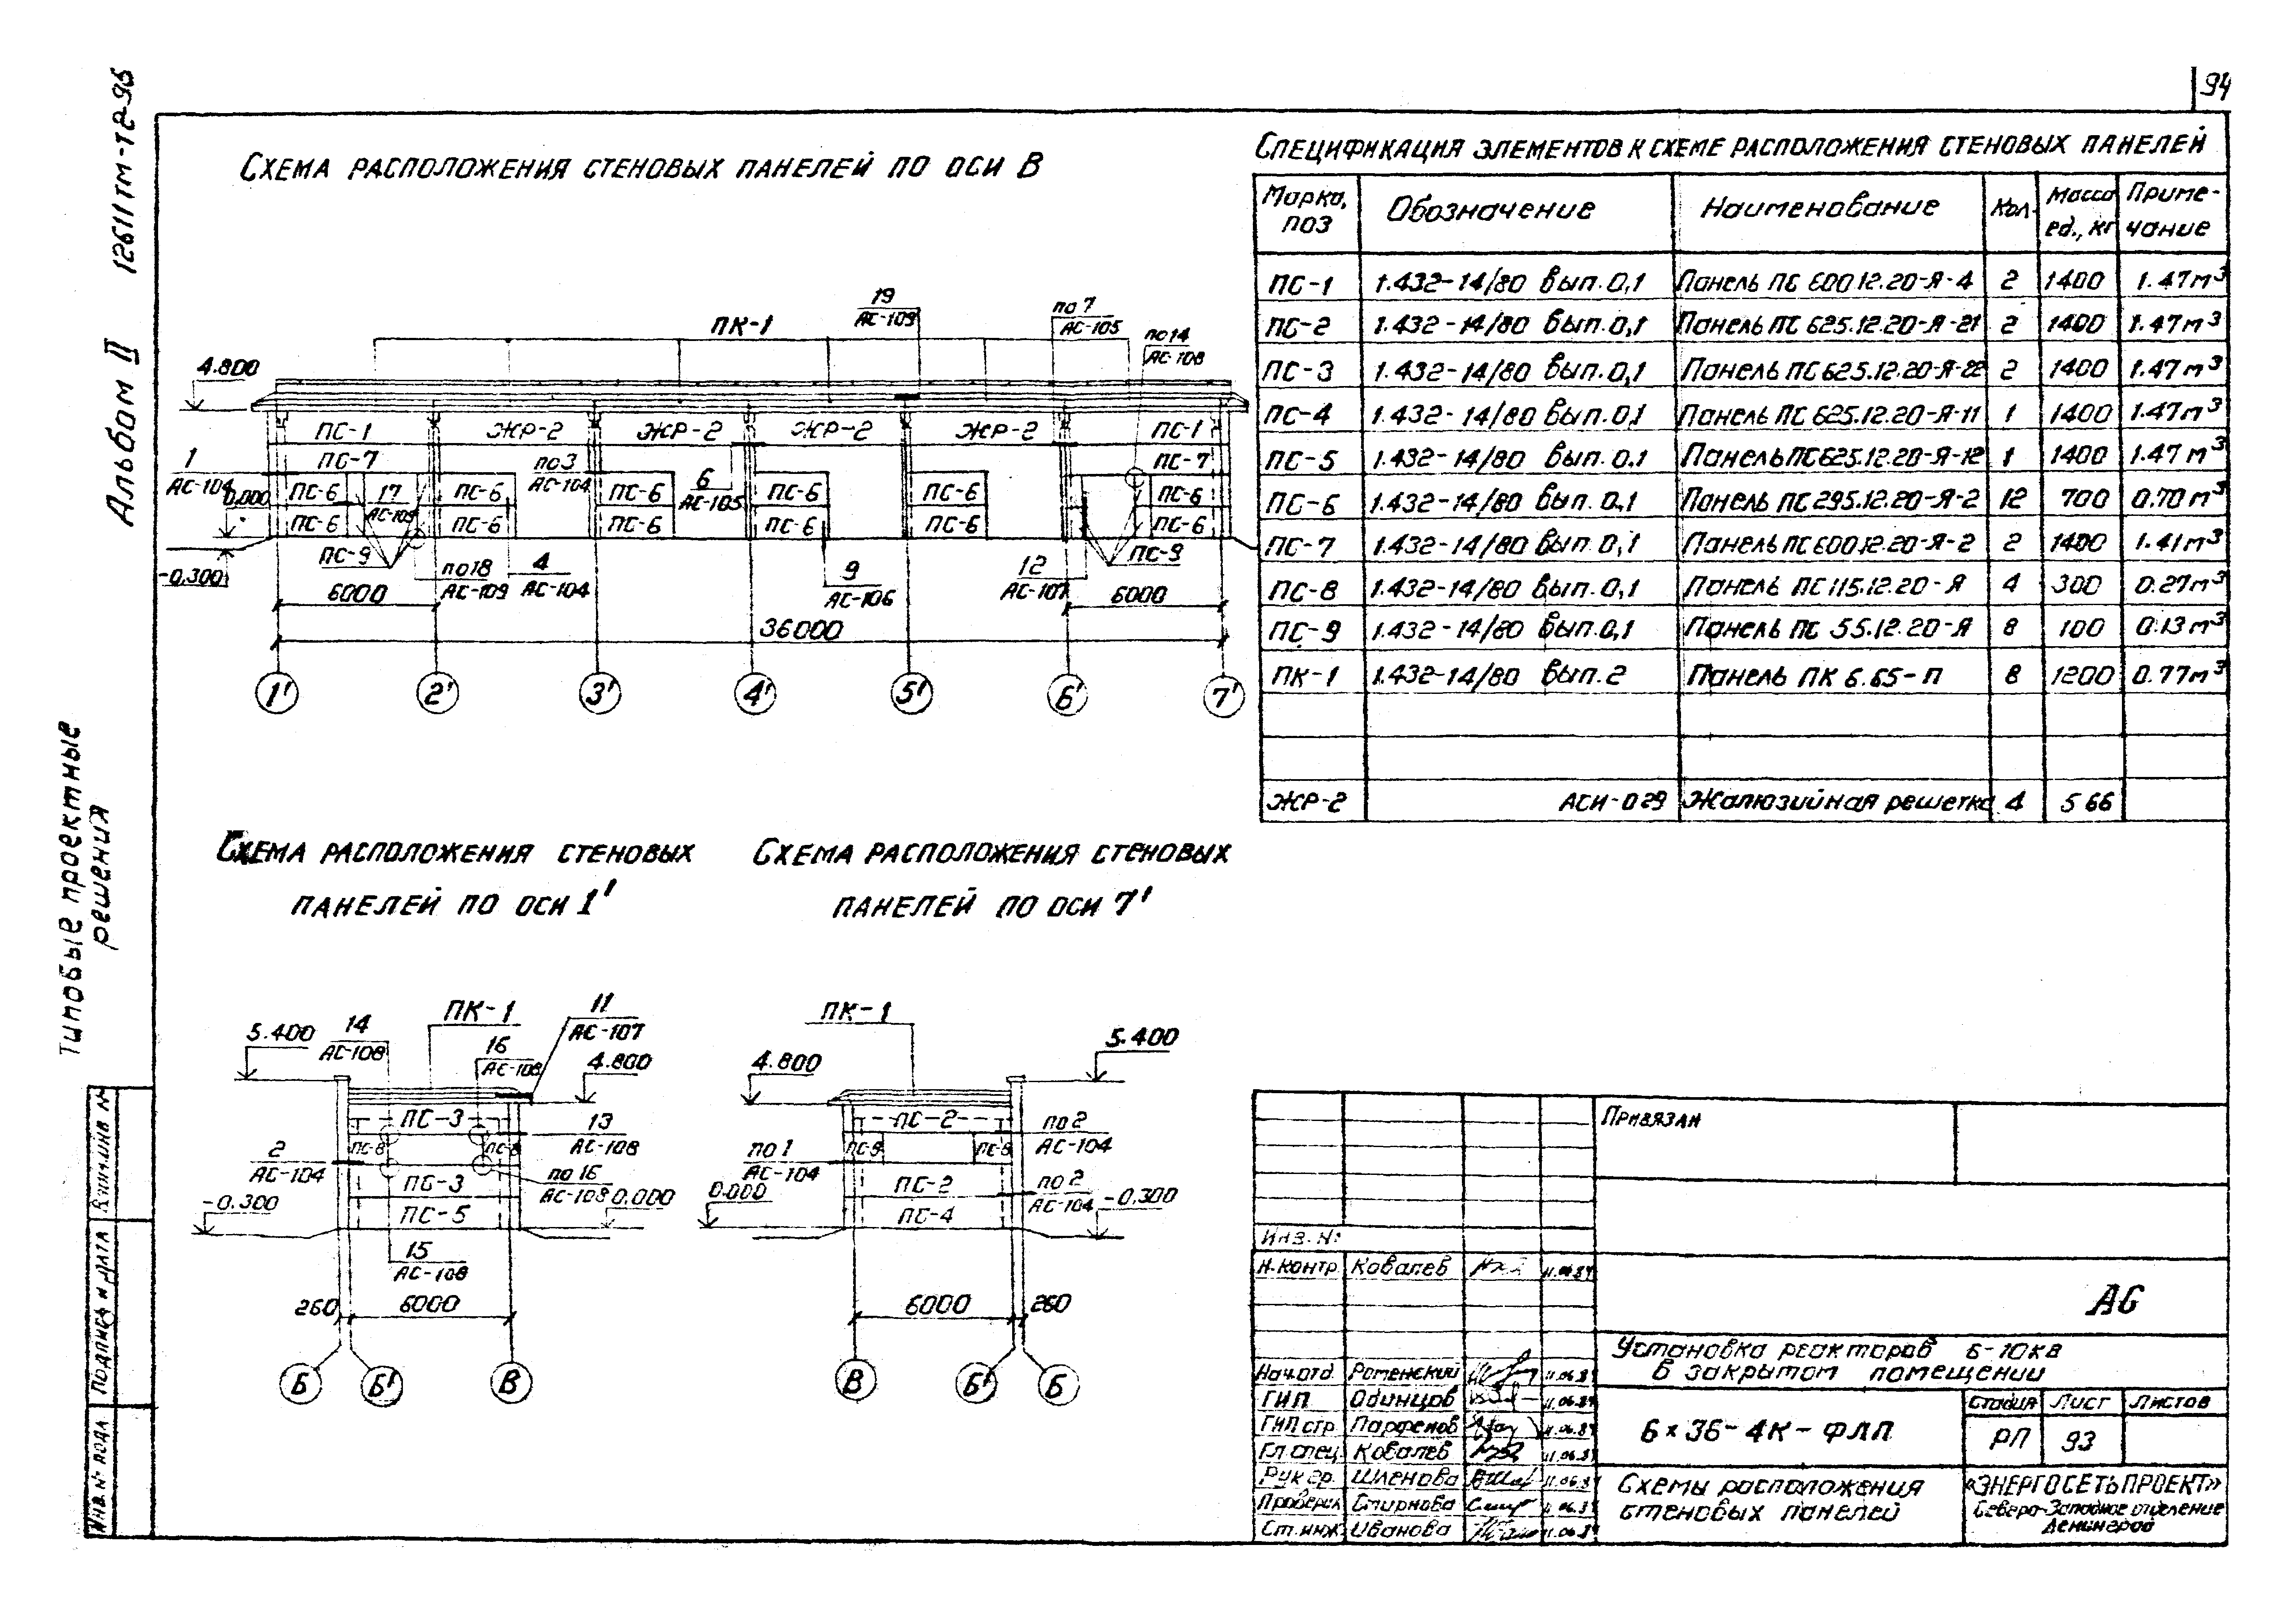 94
12611тм-т2-96
Альбом II
Типовые проектные
решения
Схема расположения стеновых панелей по оси В
19
АС-109
ПК-1
по 7
АС-105
по 14
АС-108
4.800
ПС-1 ЖР-2 ЖР-2 ЖР-2 ЖР-2 ПС-1
ПС-7 ПС-7
1
АС-104
по 3
АС-104
6
АС-105
17
АС-109
0.000
ПС-6 ПС-6 ПС-6 ПС-6 ПС-6 ПС-6
ПС-6 ПС-6 ПС-6 ПС-6 ПС-6 ПС-6
ПС-9 ПС-9
-0.300
по 18
АС-109
4
АС-104
9
АС-106
12
АС-107
6000 6000
36000
1' 2' 3' 4' 5' 6' 7'
Спецификация элементов к схеме расположения стеновых панелей
Марка, поз Обозначение Наименование Кол. Масса ед., кг Примечание
ПС-1 1.432-14/80 вып. 0,1 Панель ПС 600.12.20-Я-4 2 1400 1.47 м3
ПС-2 1.432-14/80 вып. 0,1 Панель ПС 625.12.20-Я-21 2 1400 1.47 м3
ПС-3 1.432-14/80 вып. 0,1 Панель ПС 625.12.20-Я-22 2 1400 1.47 м3
ПС-4 1.432-14/80 вып. 0,1 Панель ПС 625.12.20-Я-11 1 1400 1.47 м3
ПС-5 1.432-14/80 вып. 0.1 Панель ПС 625.12.20-Я-12 1 1400 1.47 м3
ПС-6 1.432-14/80 вып. 0,1 Панель ПС 295.12.20-Я-2 12 700 0.70 м3
ПС-7 1.432-14/80 вып. 0,1 Панель ПС 600.12.20-Я-2 2 1400 1.41 м3
ПС-8 1.432-14/80 вып. 0,1 Панель ПС 115.12.20-Я 4 300 0.27 м3
ПС-9 1.432-14/80 вып. 0,1 Панель ПС 55.12.20-Я 8 100 0.13 м3
ПК-1 1.432-14/80 вып. 2 Панель ПК 6.65-П 8 1200 0.77 м3
ЖР-2 АСИ-029 Жалюзийная решетка 4 566
Схема расположения стеновых
панелей по оси 1'
ПК-1
11
АС-107
14
АС-108
16
АС-108
5.400
4.800
ПС-3
13
АС-108
ПС-8 ПС-8
2
АС-104
ПС-3
по 16
АС-108
0.000
-0.300
ПС-5
15
АС-108
260 6000
Б Б' В
Схема расположения стеновых
панелей по оси 7'
ПК-1
5.400
4.800
ПС-2
по 2
АС-104
ПС-8 ПС-8
по 1
АС-104
ПС-2
по 2
АС-104
0.000
-0.300
ПС-4
6000 260
В Б' Б
Привязан
Инв. №
Н.контр. Ковалев 11.06.84
АС
Установка реакторов 6-10кв
в закрытом помещении
Нач.отд. Роменский 11.06.84
ГИП Одинцов 11.06.84
ГИП стр. Парфенов 11.06.84
Гл.спец. Ковалев 11.06.84
Рук.гр. Шленова 11.06.84
Провер. Смирнова 11.06.84
Ст.инж. Иванова 11.06.84
6×36-4К-ФЛП
Стадия Лист Листов
РП 93
Схемы расположения
стеновых панелей
«ЭНЕРГОСЕТЬПРОЕКТ»
Северо-Западное отделение
Ленинград
Взам.инв №
Подпись и дата
Инв. № подл.